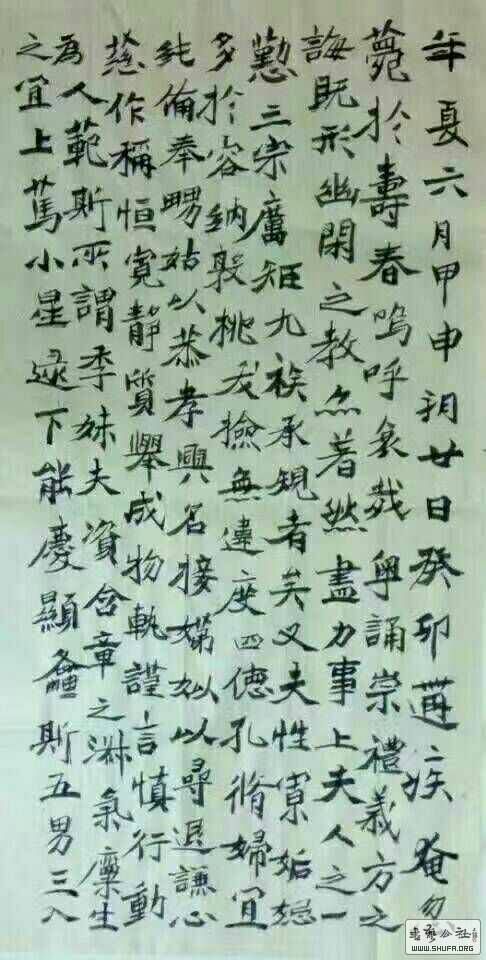 年夏六月甲申朔廿日癸卯遘疾奄忽
薨扵壽春嗚呼哀哉粤誦崇禮義方之
誨既形幽閑之教亦著然盡力事上夫人之一
懃三宗厲矩九族承規者矣又夫性寡妬忌
多扵容納敦桃夭撿無違度四德孔脩婦宜
純備奉舅姑以恭孝興名接娣姒以尋退謙心
慈作稱恒寬靜質舉成物軌謹言慎行動
為人範斯所謂季妹夫資含章之淋氣稟生
之宜上篤小星逮下能慶顯螽斯五男三入
書藝公社
WWW.SHUFA.ORG